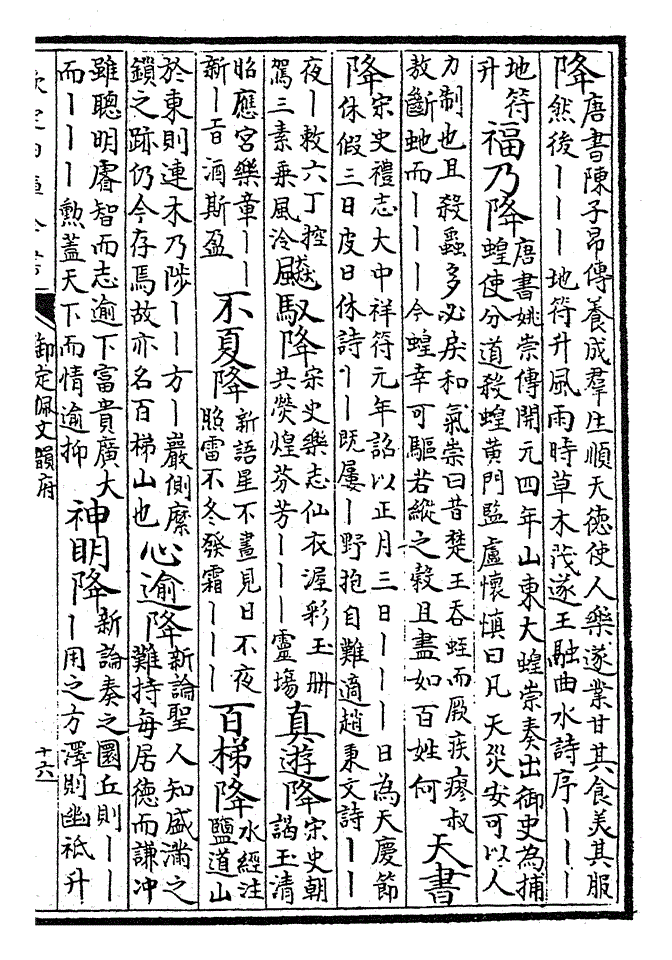 降
唐書陳子昂傳養成羣生順天德使人樂遂業甘其食美其服
然後丨丨丨地符升風雨時草木茂遂王融曲水詩序丨丨丨丨
地符
升
福乃降
唐書姚崇傳開元四年山東大蝗崇奏出御史為捕
蝗使分道殺蝗黃門監盧懷慎曰凡天災安可以人
力制也且殺蟲多必戾和氣崇曰昔楚王吞蛭而厥疾瘳叔
敖斷虵而丨丨丨今蝗幸可驅若縱之穀且盡如百姓何
天書
降
宋史禮志大中祥符元年詔以正月三日丨丨丨日為天慶節
休假三日皮日休詩丨丨既屢丨野抱自難適趙秉文詩丨丨
夜丨敕六丁控
駕三素乗風泠
風馭降
宋史樂志仙衣渥彩玉册
共熒煌芬芳丨丨丨靈塲
真遊降
宋史朝
謁玉清
昭應宮樂章丨丨
新丨旨酒斯盈
不夏降
新語星不晝見日不夜
照雷不冬發霜丨丨丨
百梯降
水經注
鹽道山
於東則連木乃陟丨丨方丨巖側縻
鎖之跡仍今存焉故亦名百梯山也
心逾降
新論聖人知盛滿之
難持每居德而謙冲
雖聰明睿智而志逾下富貴廣大
而丨丨丨勲蓋天下而情逾抑
神明降
新論奏之圜丘則丨丨
丨用之方澤則幽祗升
欽定四庫全書
御定佩文韻府
十六